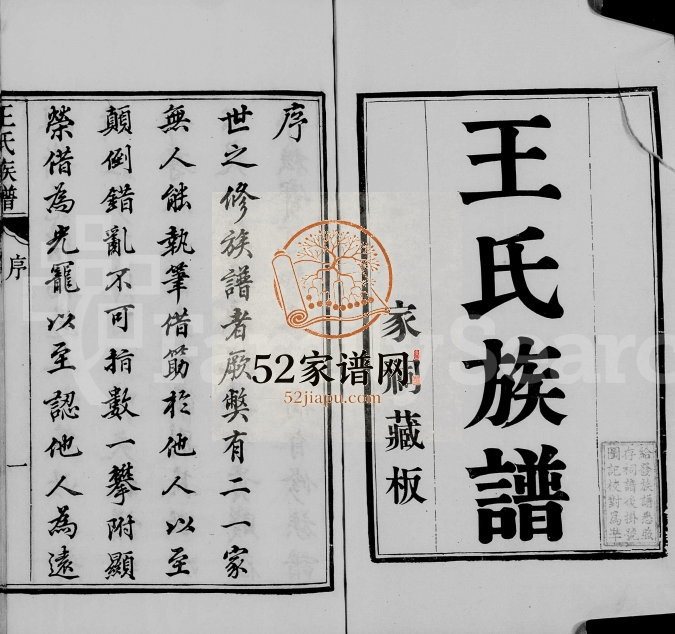 王氏族譜
家祠藏板
序
世之修族譜者厥弊有二一家
無人能執筆借筯於他人以至
顛倒錯亂不可指數一攀附顯
榮借為光寵以至認他人為遠
王氏族譜
序
一
52家谱网
52jiapu.com